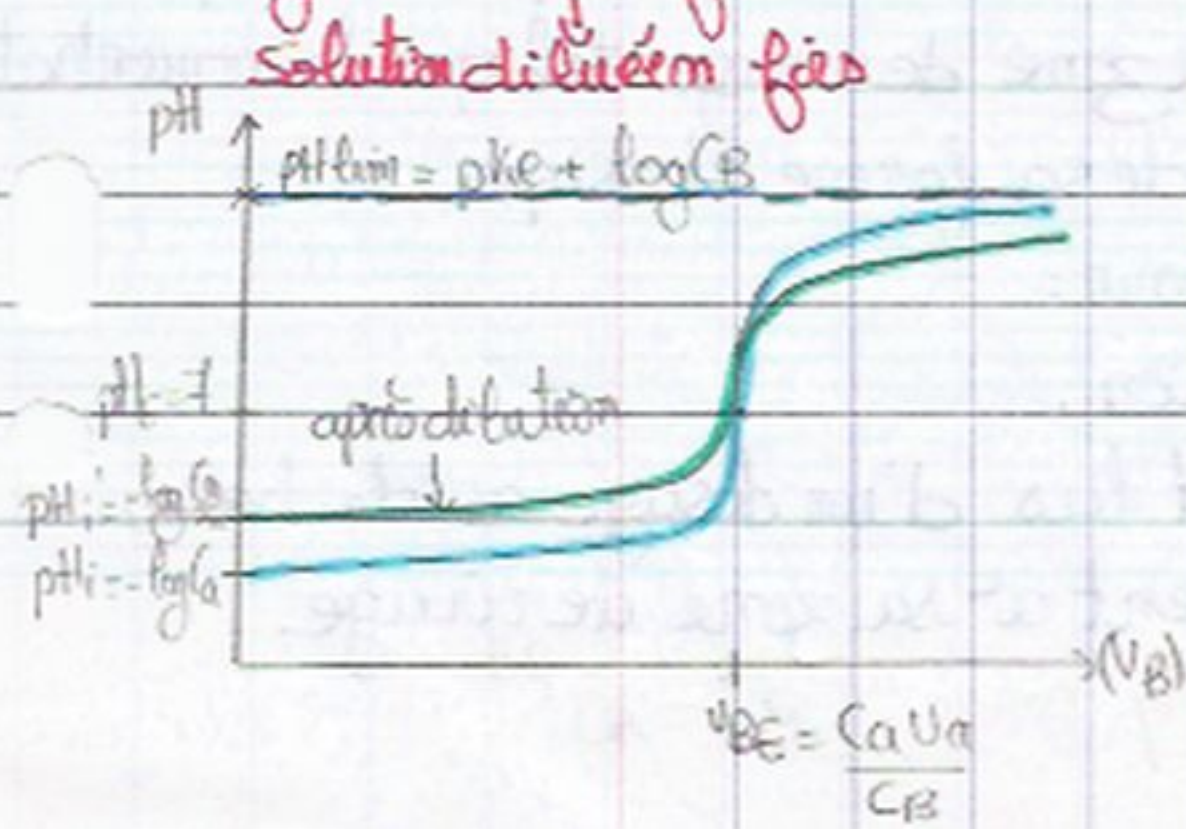 Solution diluée n fois
pH
pHlim = pKe + log CB
pH = 7
après dilution
pHi = -log Ca
pHi = -log Ca
(VB)
VBE = CaVa
CB